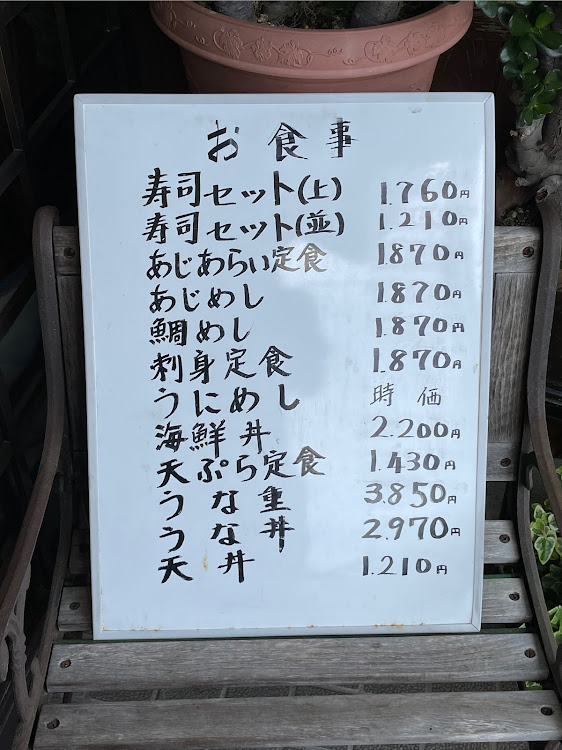 お食事
寿司セット(上) 1.760円
寿司セット(並) 1.210円
あじあらい定食 1870円
あじめし 1.870円
鯛めし 1.870円
刺身定食 1.870円
うにめし 時価
海鮮丼 2.200円
天ぷら定食 1.430円
うな重 3.850円
うな丼 2.970円
天丼 1.210円